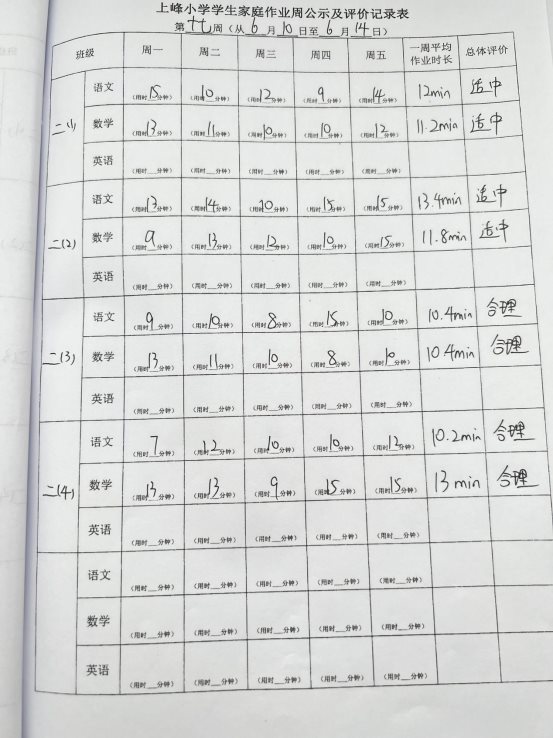 上峰小学学生家庭作业周公示及评价记录表
第十七周（从 6 月 10 日至 6 月 14 日）
班级 周一 周二 周三 周四 周五 一周平均作业时长 总体评价
二(1) 语文 （用时15分钟） （用时10分钟） （用时12分钟） （用时9分钟） （用时14分钟） 12min 适中
数学 （用时13分钟） （用时11分钟） （用时10分钟） （用时10分钟） （用时12分钟） 11.2min 适中
英语 （用时__分钟） （用时__分钟） （用时__分钟） （用时__分钟） （用时__分钟）
二(2) 语文 （用时13分钟） （用时14分钟） （用时10分钟） （用时15分钟） （用时15分钟） 13.4min 适中
数学 （用时9分钟） （用时13分钟） （用时12分钟） （用时10分钟） （用时15分钟） 11.8min 适中
英语 （用时__分钟） （用时__分钟） （用时__分钟） （用时__分钟） （用时__分钟）
二(3) 语文 （用时9分钟） （用时10分钟） （用时8分钟） （用时15分钟） （用时10分钟） 10.4min 合理
数学 （用时13分钟） （用时11分钟） （用时10分钟） （用时8分钟） （用时10分钟） 10.4min 合理
英语 （用时__分钟） （用时__分钟） （用时__分钟） （用时__分钟） （用时__分钟）
二(4) 语文 （用时7分钟） （用时12分钟） （用时10分钟） （用时10分钟） （用时12分钟） 10.2min 合理
数学 （用时13分钟） （用时13分钟） （用时9分钟） （用时15分钟） （用时15分钟） 13min 合理
英语 （用时__分钟） （用时__分钟） （用时__分钟） （用时__分钟） （用时__分钟）
语文 （用时__分钟） （用时__分钟） （用时__分钟） （用时__分钟） （用时__分钟）
数学 （用时__分钟） （用时__分钟） （用时__分钟） （用时__分钟） （用时__分钟）
英语 （用时__分钟） （用时__分钟） （用时__分钟） （用时__分钟） （用时__分钟）